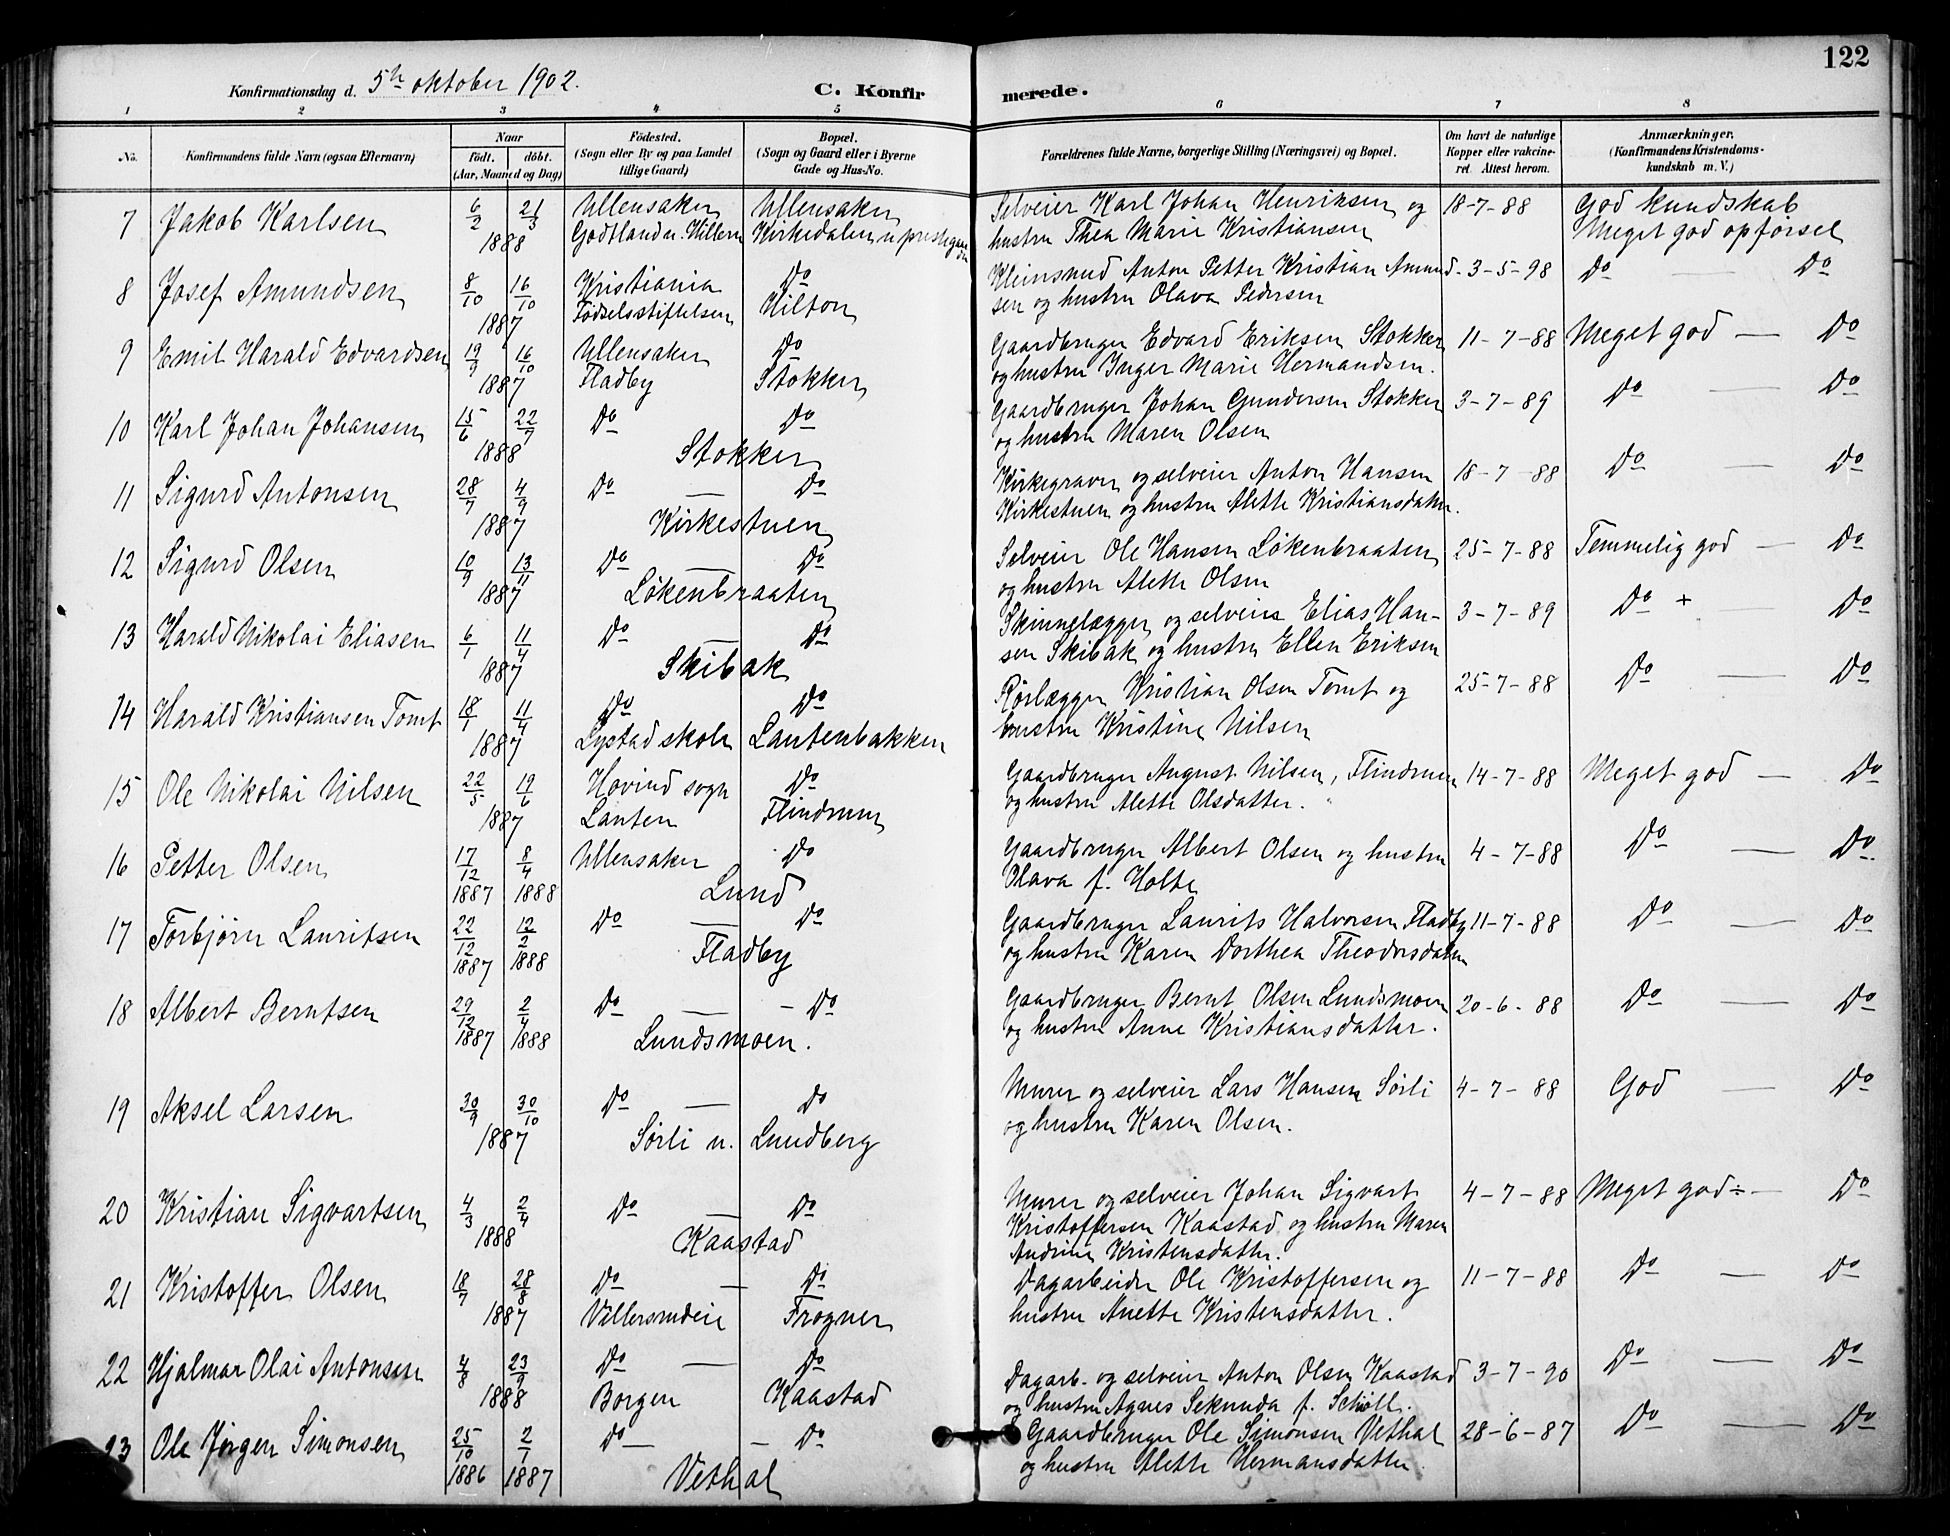 122
Konfirmationsdag d. 5te oktober 1902.
C. Konfirmerede.
1 2 3 4 5 6 7 8
No. Konfirmandens fulde Navn (ogsaa Efternavn) Naar født. døbt. (Aar, Maaned og Dag) Fødested. (Sogn eller By og paa Landet tillige Gaard) Bopæl. (Sogn og Gaard eller i Byerne Gade og Hus-No. Forældrenes fulde Navne, borgerlige Stilling (Næringsvei) og Bopæl. Om havt de naturlige Kopper eller vakcineret. Attest herom. Anmærkninger. (Konfirmandens Kristendomskundskab m. V.)
7 Jakob Karlsen 6/2 21/3 Ullensaker Ullensaker Selveier Karl Johan Henriksen og 18-7-88 God kundskab
1888 Godtland u. Hilleren Kirkedalen u. hustru Thea Marie Kristiansen Meget god opførsel
8 Josef Amundsen 8/10 16/10 Kristiania Do Kleinsmed Anton Petter Kristian Amund- 3-5-98 Do — Do
1887 Fødselsstiftelsen Hilton sen og hustru Olava Pedersen
9 Emil Harald Edvardsen 19/9 16/10 Ullensaker Do Gaardbruger Edvard Eriksen Stokker 11-7-88 Meget god — Do
1887 Fladby Stokker og hustru Inger Marie Hermandsen.
10 Karl Johan Johansen 15/6 22/7 Do Do Gaardbruger Johan Gundersen Stokker 3-7-89 Do — Do
1888 Stokker og hustru Maren Olsen
11 Sigurd Antonsen 28/7 4/9 Do — Do Kirkegraver og selveier Anton Hansen 18-7-88 Do — Do
1887 Kirkestuen Kirkestuen og hustru Alette Kristiansdatter.
12 Sigurd Olsen 10/9 13/11 Do — Do Selveier Ole Hansen Løkenbraaten 25-7-88 Temmelig god — Do
1887 Løkenbraaten og hustru Alette Olsen
13 Harald Nikolai Eliasen 6/1 11/4 Do — Do Skinnelægger og selveier Elias Han- 3-7-89 Do + Do
1887 Skibak sen Skibak og hustru Ellen Eriksen
14 Harald Kristiansen Tomt 18/1 11/4 Do Do Rørlægger Kristian Olsen Tomt og 25-7-88 Do — Do
1887 Lystad skole Lautenbakken hustru Kristine Nilsen
15 Ole Nikolai Nilsen 22/5 19/6 Hovind sogn Do Gaardbruger August Nilsen, Flindrum 14-7-88 Meget god — Do
1887 Lauten Flindrum og hustru Alette Olsdatter.
16 Petter Olsen 17/12 8/4 Ullensaker Do Gaardbruger Albert Olsen og hustru 4-7-88 Do — Do.
1887 1888 Lund Olava f. Holte
17 Torbjørn Lauritsen 22/12 12/2 Do — Do Gaardbruger Laurits Halvorsen Fladby 11-7-88 Do — Do
1887 1888 Fladby og hustru Karen Dorthea Theodorsdatter
18 Albert Berntsen 29/12 2/4 Do — - Do Gaardbruger Bernt Olsen Lundsmoen 20-6-88 Do — Do
1887 1888 Lundsmoen. og hustru Anne Kristiansdatter.
19 Aksel Larsen 30/9 30/10 Do — Do Murer og selveier Lars Hansen Sørli 4-7-88 God — Do
1887 Sørli u. Lundberg og hustru Karen Olsen.
20 Kristian Sigvartsen 4/3 2/4 Do — Do Murer og selveier Johan Sigvart 4-7-88 Meget god ÷ — Do
1888 Kaastad Kristoffersen Kaastad og hustru Maren
Andrine Kristensdatter.
21 Kristoffer Olsen 18/7 28/8 Do — Do Dagarbeider Ole Kristoffersen og 11-7-88 Do — Do
1887 Villersrudeie Frogner hustru Anette Kristensdatter.
22 Hjalmar Olai Antonsen 4/8 23/9 Do — Do Dagarb. og selveier Anton Olsen Kaastad 3-7-90 Do — Do
1888 Borgen Kaastad og hustru Agnes Sekunda f. Schøll.
23 Ole Jørgen Simonsen 25/10 2/7 Do — - Do Gaardbruger Ole Simonsen Vethal 28-6-87 Do — Do
1886 1887 Vethal og hustru Alette Hermansdatter.